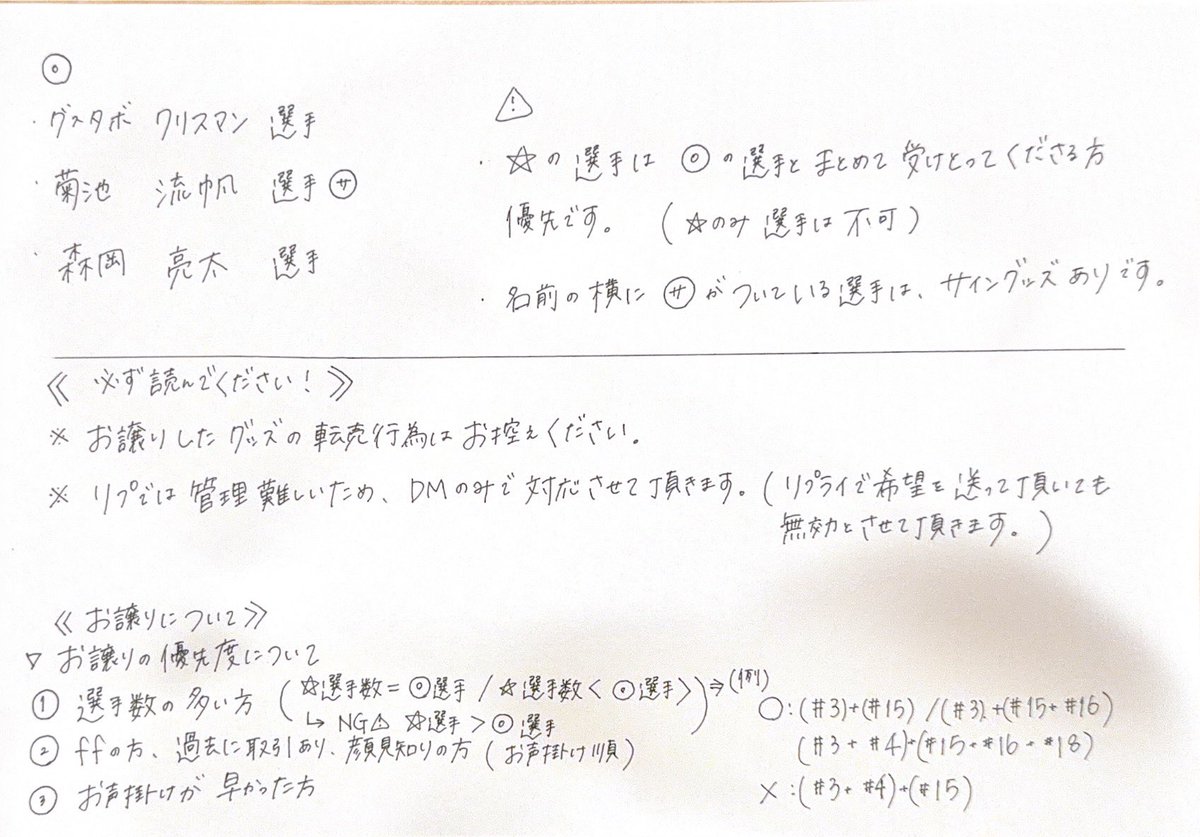 ◎
・グスタボ クリスマン 選手
・菊池 流帆 選手 ㋚
・森岡 亮太 選手
⚠
・☆の選手は ◎の選手と まとめて 受けとってくださる方
優先です。 (☆のみ 選手は 不可)
・名前の横に ㋚ がついている選手は、サイングッズありです。
《 必ず読んでください! 》
※ お譲りしたグッズの転売行為はお控えください。
※ リプでは管理難しいため、DMのみで対応させて頂きます。(リプライで希望を送って頂いても
無効とさせて頂きます。)
《お譲りについて》
▽ お譲りの優先度について
① 選手数の多い方 (☆選手数=◎選手 / ☆選手数<◎選手) ⇒ (例)
↳ NG⚠ ☆選手 > ◎選手
○:(#3)+(#15) /(#3)+(#15+#16)
(#3+#4)+(#15+#16+#18)
×:(#3+#4)+(#15)
② ffの方、過去に取引あり、顔見知りの方 (お声掛け順)
③ お声掛けが 早かった方